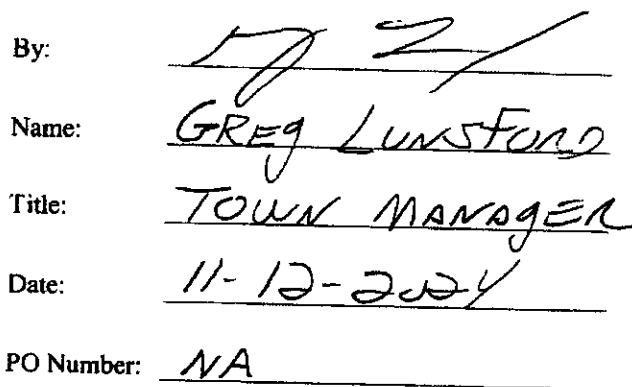 By:
Name: GREg LUNSFORD
Title: TOWN MANAgER
Date: 11-12-2024
PO Number: NA